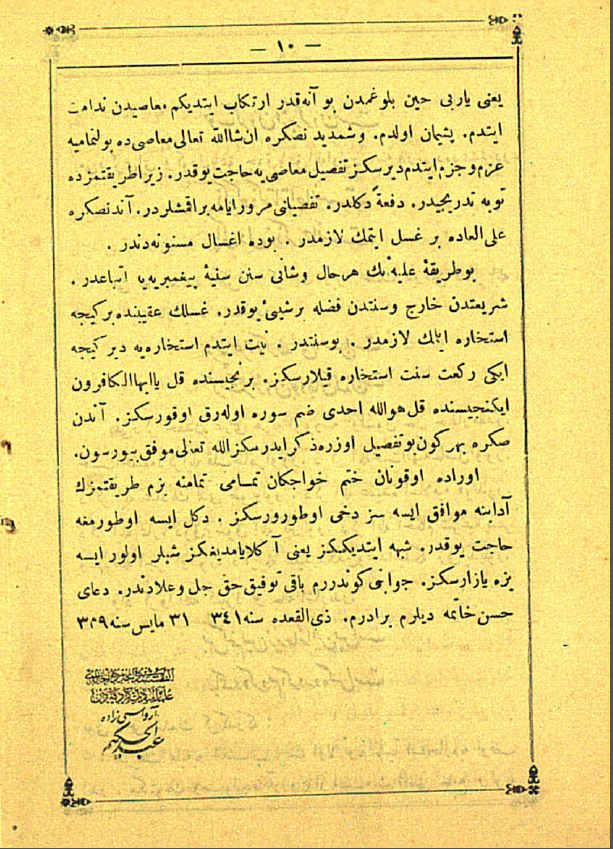 — ١٠ —
يعنى ياربى حين بلوغمدن بو آنه‌قدر ارتكاب ايتديكم معاصيدن ندامت
ايتدم. پشيمان اولدم. وشمديد نصكره ان‌شاالله تعالى معاصى‌ده بولنماميه
عزم و جزم ايتدم ديرسكز تفصيل معاصى‌يه حاجت يوقدر. زيرا طريقتمزده
توبه تدريجيدر. دفعةً دكلدر. تفصيلنى مرور ايامه براقمشلردر. آندنصكره
على‌العاده بر غسل ايتمك لازمدر. بوده اغسال مسنونه‌دندر.
بوطريقۀ عليه‌نك هرحال وشانى سنن سنيۀ پيغمبريه‌يه اتباعدر.
شريعتدن خارج وسنتدن فضله برشيئ يوقدر. غسلك عقيبنده بركيجه
استخاره ايتمك لازمدر. بوسنتدر. نيت ايتدم استخاره‌يه دير كيجه
ايكى ركعت سنت استخاره قيلارسكز. برنجيسنده قل ياايهاالكافرون
ايكنجيسنده قل هوالله احدى ضم سوره اوله‌رق اوقورسكز. آندن
صكره بهركون بوتفصيل اوزره‌ذكر ايدرسكز الله تعالى موفق بيورسون.
اوراده اوقونان ختم خواجكان تمامى تمامنه بزم طريقتمزك
آدابنه موافق ايسه سز دخى اوطورورسكز. دكل ايسه اوطورمغه
حاجت يوقدر. شبهه ايتديككز يعنى آكلايامديغكز شيلر اولور ايسه
بزه يازارسكز. جوابنى كوندررم باقى توفيق حق جل وعلادندر. دعاى
حسن خاتمه ديلرم برادرم. ذى‌القعده سنه ٣٤١ ٣١ مايس سنه ٣٣٩
آرواسى‌زاده
عبدالحكيم